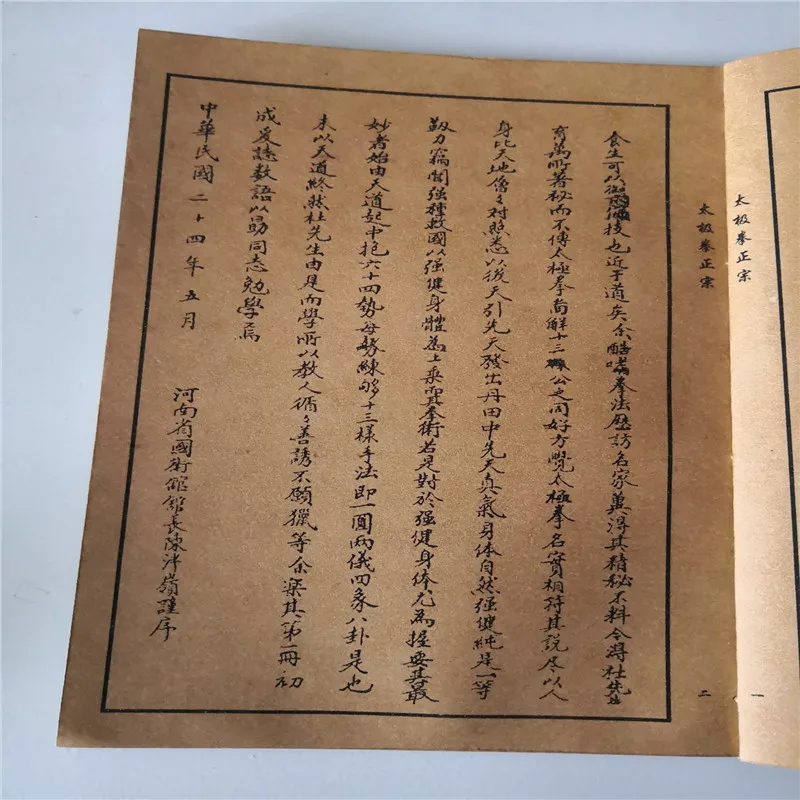 太极拳正宗
一
太极拳正宗
二
生可以御技也近于道矣余酷嗜拳法歷訪名家冀得其精秘不料今得杜先生
育萬所著秘而不傳太極拳尚解十三公之同好方覺太極拳名實相符其說尽以人
身比天地对照悉以後天引先天發出丹田中先天真氣身体自然强健純是一等
力竊聞强種救國以强健身體為上乘拳術若是對於强健身体尤為握要其最
妙者始由天道起中抱六十四勢每勢練够十三樣手法即一圓兩儀四象八卦是也
末以天道終然杜先生由是而學所以教人循〻善誘不願獵等余樂其第一冊初
成爰誌数語以勗同志勉學焉
中華民國二十四年五月
河南省國術館館長陳泮嶺謹序